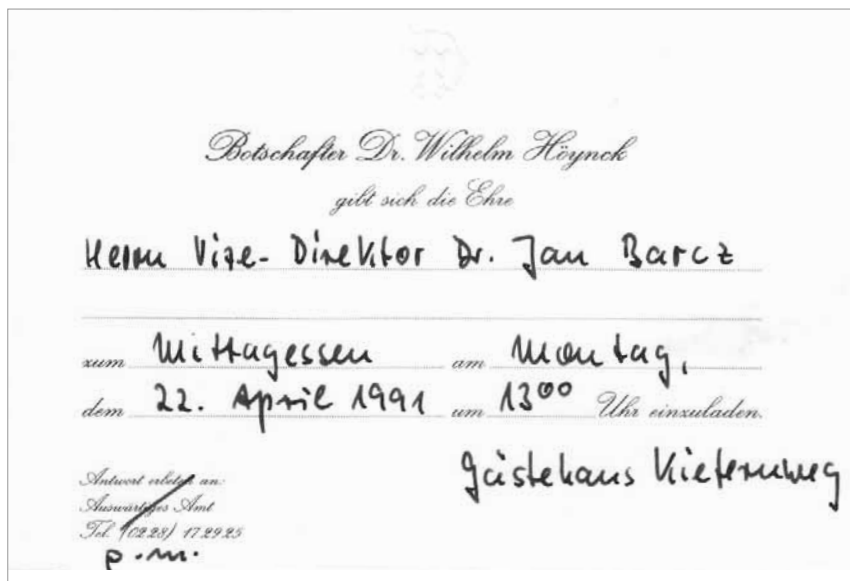 Botschafter Dr. Wilhelm Höynck
gibt sich die Ehre
Herrn Vize-Direktor Dr. Jan Barcz
zum Mittagessen am Montag,
dem 22. April 1991 um 13⁰⁰ Uhr einzuladen.
Gästehaus Kiefernweg
Antwort erbeten an:
Auswärtiges Amt
Tel. (0228) 172925
p.m.